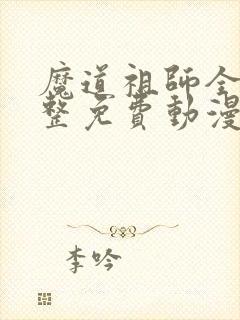 魔道祖師全
整免費動漫
李吟